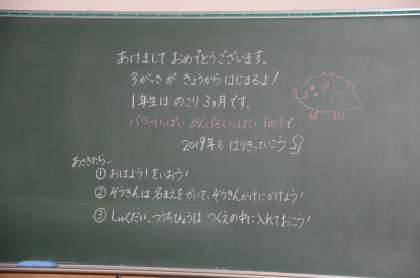 あけまして おめでとうございます。
3がっきが きょうからはじまるよ!
1年生は のこり3ヵ月です。
パワーいっぱい がんばろういっぱい 1の3で
2019年も はりきっていこう
あさきたら、
① おはよう!をいおう!
② ぞうきんは 名まえをかいて、ぞうきんかけにかけよう!
③ しゅくだい、つうちひょうは つくえの中に入れておこう!